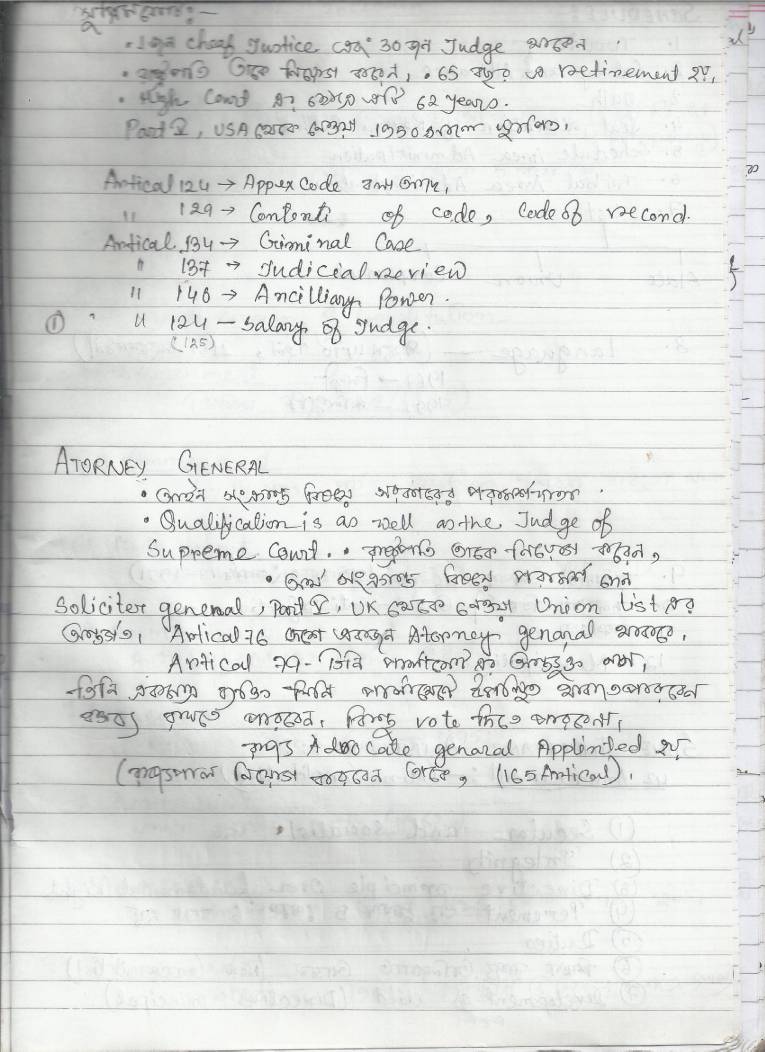 সুপ্রিমকোর্ট :-
• ১জন cheaf Justice এবং 30 জন Judge থাকেন
• রাষ্ট্রপতি তাকে নিয়োগ করেন, • 65 বছর এ retirement হয়,
• High Court এর ক্ষেত্রে এটি 62 years.
Part V, USA থেকে নেওয়া 1950 সালে স্থাপিত।
Artical 124 → Appex Code বলা আছে,
" 129 → Contenti of code, Code of recond.
Artical 134 → Criminal Case
" 137 → Judicial review
" 140 → Ancilliary Power.
① " 124 - Salary of Judge.
(125)
ATORNEY GENERAL
• আইন সংক্রান্ত বিষয়ে সরকারের পরামর্শদাতা
• Qualification is as well as the Judge of
Supreme Court. • রাষ্ট্রপতি তাকে নিয়োগ করেন,
• অর্থ সংক্রান্ত বিষয়ে পরামর্শ দেন
Soliciter general, Part V, UK থেকে নেওয়া Union List এর
অন্তর্গত, Artical 76 দেশে একজন Atorney genaral থাকবে,
Artical 79 - তিনি পার্লামেন্ট এর অন্তর্ভুক্ত নন,
তিনি একমাত্র ব্যক্তি যিনি পার্লামেন্টে উপস্থিত থাকতে পারবেন
বক্তব্য রাখতে পারবেন, কিন্তু vote দিতে পারবেনা,
রাজ্যে Advocate genaral Appointed হয়
(রাজ্যপাল নিয়োগ করবেন তাকে, (165 Artical).